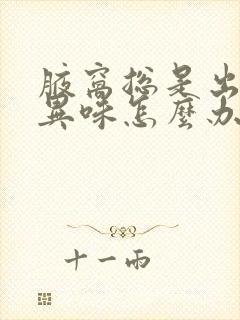 腋窩總是出
異味怎麼办
十一兩